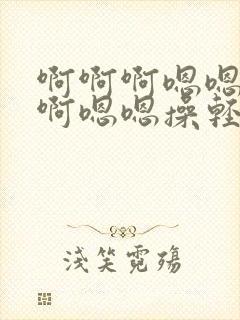 啊啊啊嗯嗯
啊嗯嗯操轻
浅笑霓殇